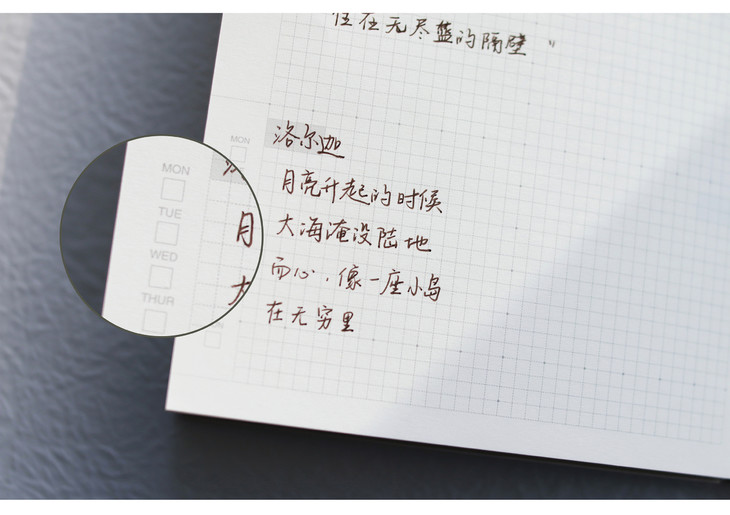 住在无尽蓝的隔壁"
洛尔迦
月亮升起的时候
大海淹没陆地
而心，像一座小岛
在无穷里
MON
MON
TUE
WED
THUR
月
大